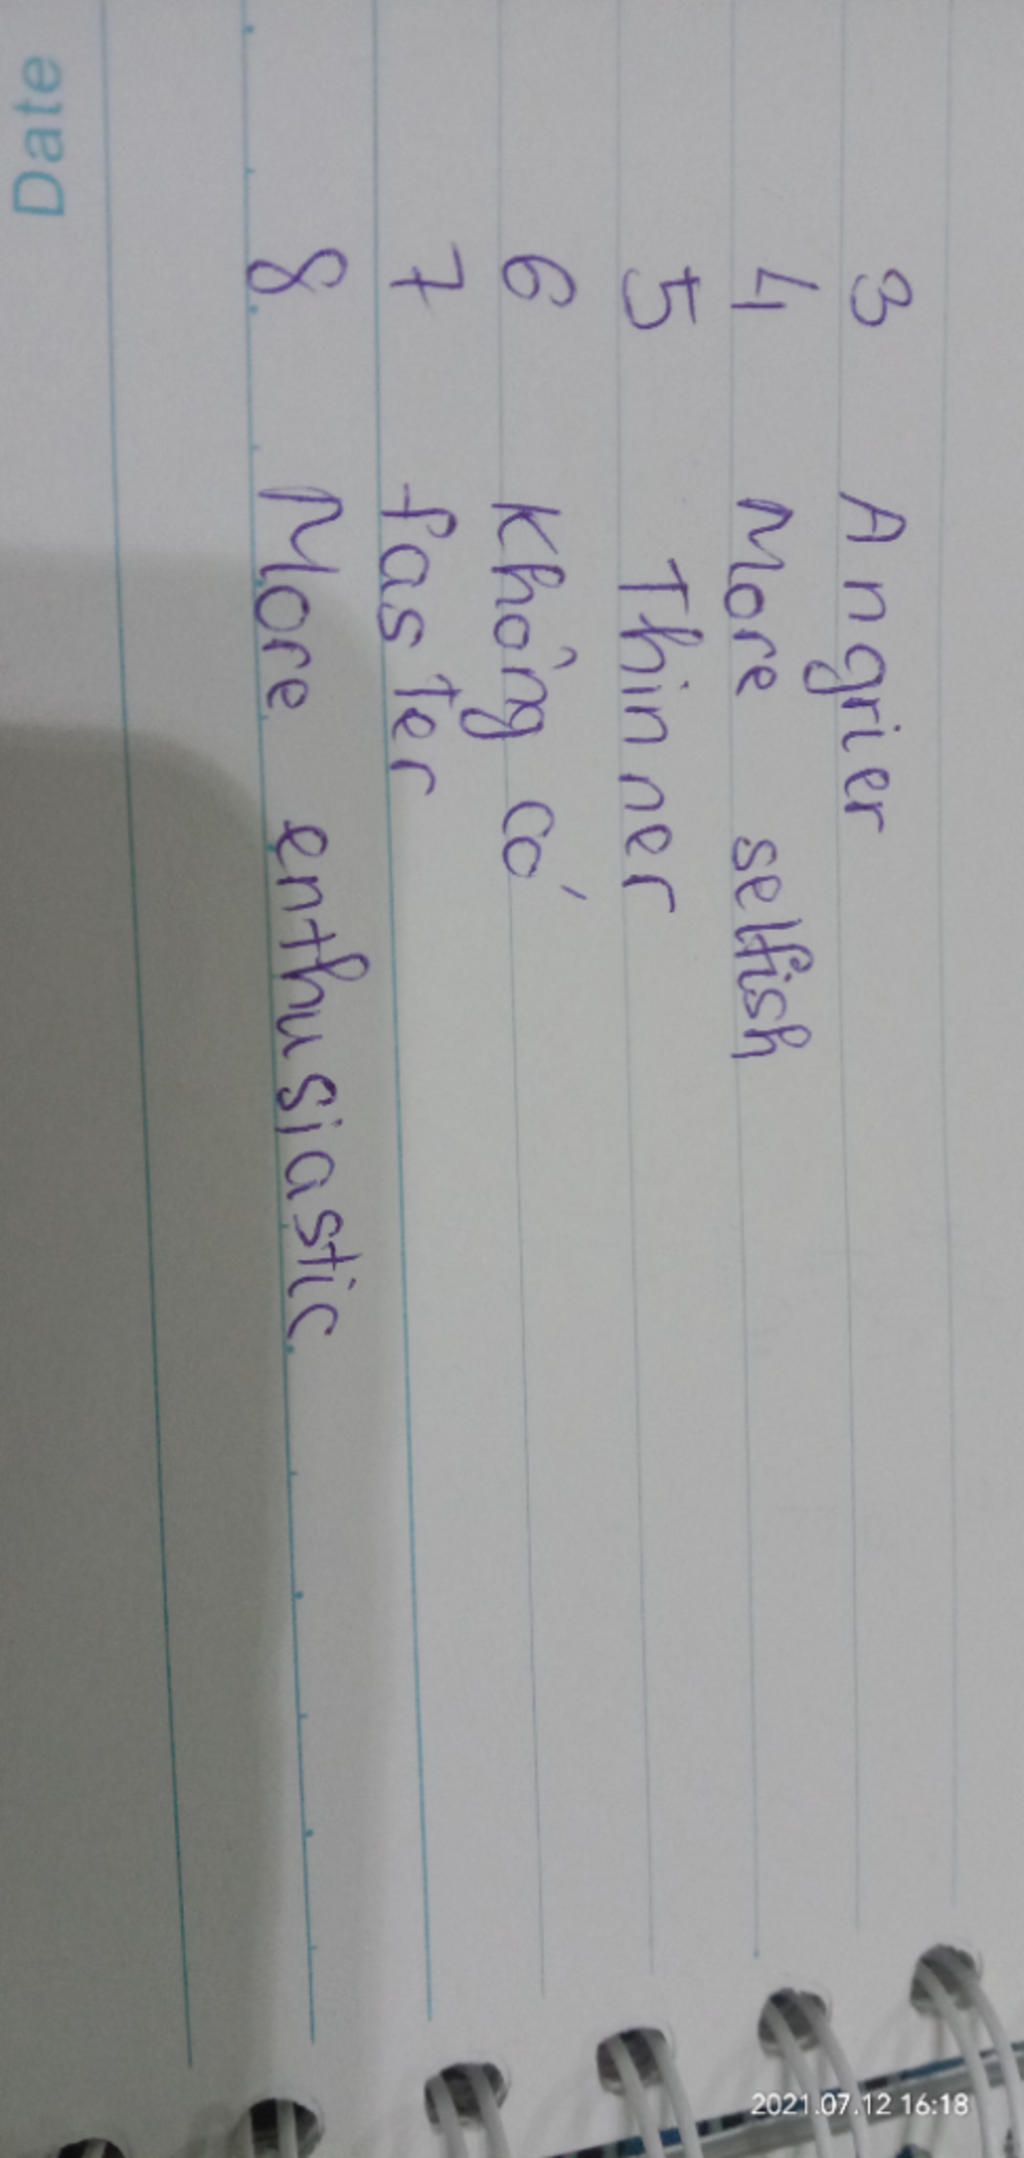 3 Angrier
4 More selfish
5 Thinner
6 Không có
7 faster
8 More enthusiastic
Date
2021.07.12 16:18